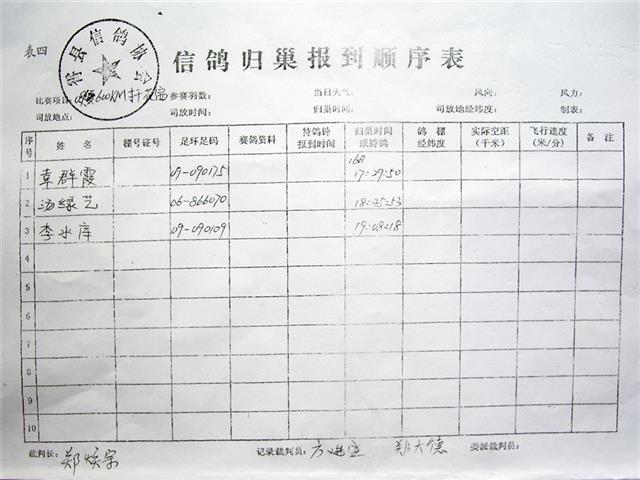 表四
县信鸽协会
信鸽归巢报到顺序表
比赛项目: 600KM 参赛羽数: 当日天气: 风向: 风力:
司放地点: 司放时间: 归巢时间: 司放地经纬度: 制表:
序号 姓名 棚号证号 足环足码 赛鸽资料 持鸽钟报到时间 归巢时间或持鸽 鸽棚经纬度 实际空距(千米) 飞行速度(米/分) 备注
16日
1 袁群霞 09-090175 17:29:50
2 汤绿艺 06-866070 18:45:53
3 李水库 09-090109 19:08:18
4
5
6
7
8
9
10
裁判长: 郑焕宗 记录裁判员: 郑大德 委派裁判员: